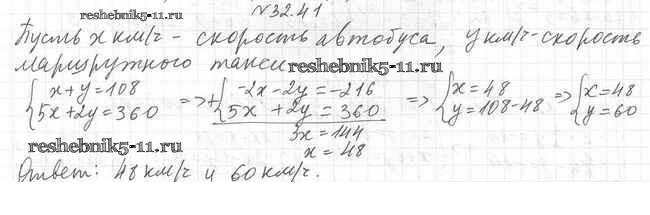 №32.41
reshebnik5-11.ru
Пусть x км/ч - скорость автобуса, y км/ч - скорость
маршрутного такси
reshebnik5-11.ru
{x+y=108 5x+2y=360 => +{-2x-2y=-216 5x+2y=360 => {x=48 y=108-48 => {x=48 y=60
3x=144
x=48
reshebnik5-11.ru
Ответ: 48 км/ч и 60 км/ч.